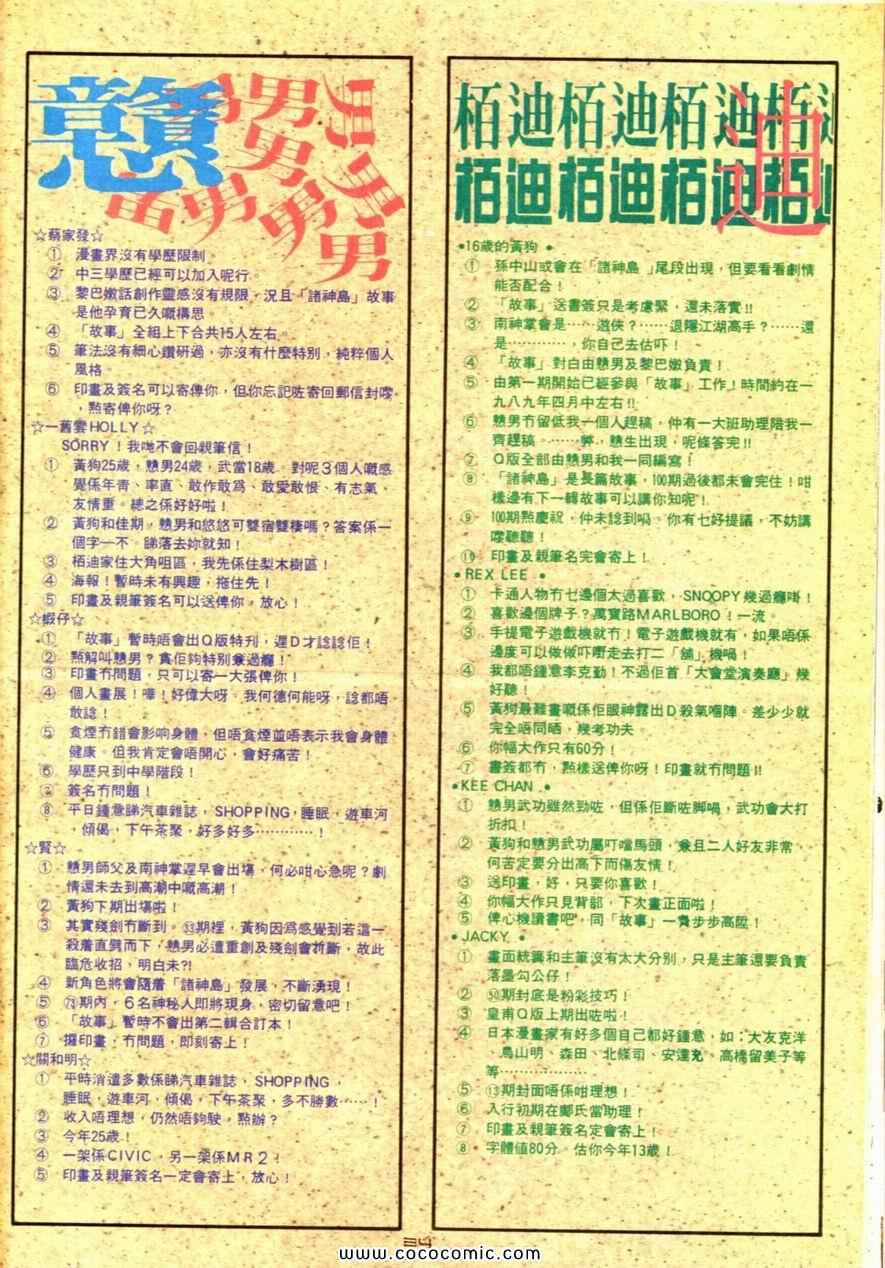 戇男
男男男男男男男男男
☆蔡家發☆
① 漫畫界沒有學歷限制。
② 中三學歷已經可以加入呢行。
③ 黎巴嫩話創作靈感沒有規限，況且「諸神島」故事
是他孕育已久嘅構思。
④ 「故事」全組上下合共15人左右。
⑤ 筆法沒有細心鑽研過，亦沒有什麼特別，純粹個人
風格
⑥ 印畫及簽名可以寄俾你，但你忘記咗寄回郵信封嚟
，點寄俾你呀？
☆一舊雲HOLLY☆
SORRY！我哋不會回親筆信！
① 黃狗25歲，戇男24歲，武當18歲。對呢3個人嘅感
覺係年靑、率直、敢作敢爲、敢愛敢恨、有志氣、
友情重。總之係好好啦！
② 黃狗和佳期，戇男和悠悠可雙宿雙棲嗎？答案係一
個字—不。睇落去妳就知！
③ 栢迪家住大角咀區，我先係住梨木樹區！
④ 海報！暫時未有興趣，拖住先！
⑤ 印畫及親筆簽名可以送俾你，放心！
☆蝦仔☆
① 「故事」暫時唔會出Q版特刊，遲D才諗諗佢！
② 點解叫戇男？貪佢夠特別兼過癮！
③ 印畫冇問題，只可以寄一大張俾你！
④ 個人畫展！嘩！好偉大呀。我何德何能呀，諗都唔
敢諗！
⑤ 食煙冇錯會影响身體，但唔食煙並唔表示我會身體
健康。但我肯定會唔開心，會好痛苦！
⑥ 學歷只到中學階段！
⑦ 簽名冇問題！
⑧ 平日鍾意睇汽車雜誌，SHOPPING，睡眠，遊車河
，傾偈，下午茶聚，好多好多…………！
☆賢☆
① 戇男師父及南神掌遲早會出場，何必咁心急呢？劇
情還未去到高潮中嘅高潮！
② 黃狗下期出場啦！
③ 其實殘劍冇斷到。㉝期裡，黃狗因爲感覺到若這一
殺着直劈而下，戇男必遭重創及殘劍會折斷，故此
臨危收招，明白未?!
④ 新角色將會隨着「諸神島」發展，不斷湧現！
⑤ ⑱期內，6名神秘人即將現身，密切留意吧！
⑥ 「故事」暫時不會出第二輯合訂本！
⑦ 攞印畫，冇問題，即刻寄上！
☆關和明☆
① 平時消遣多數係睇汽車雜誌，SHOPPING，
睡眠，遊車河，傾偈，下午茶聚，多不勝數……！
② 收入唔理想，仍然唔夠駛，點辦？
③ 今年25歲！
④ 一架係CIVIC，另一架係MR2！
⑤ 印畫及親筆簽名一定會寄上，放心！
栢迪栢迪栢迪栢迪
栢迪栢迪栢迪栢迪
迪
•16歲的黃狗•
① 孫中山或會在「諸神島」尾段出現，但要看看劇情
能否配合！
② 「故事」送書簽只是考慮緊，還未落實!!
③ 南神掌會是……遊俠？……退隱江湖高手？……還
是…………，你自己去估吓！
④ 「故事」對白由戇男及黎巴嫩負責！
⑤ 由第一期開始已經參與「故事」工作！時間約在一
九八九年四月中左右!!
⑥ 戇男冇留低我一個人趕稿，仲有一大班助理陪我一
齊趕稿。……嘩，戇生出現，呢條答完!!
⑦ Q版全部由戇男和我一同編寫！
⑧ 「諸神島」是長篇故事，100期過後都未會完住！咁
樣邊有下一輯故事可以講你知呢！
⑨ 100期點慶祝，仲未諗到喎。你有乜好提議，不妨講
嚟聽聽！
⑩ 印畫及親筆名完會寄上！
•REX LEE•
① 卡通人物冇乜邊個太過喜歡，SNOOPY幾過癮啩！
② 喜歡邊個牌子？萬寶路MARLBORO！一流。
③ 手提電子遊戲機就冇！電子遊戲機就有，如果唔係
邊度可以做做吓嘢走去打二「舖」機喎！
④ 我都唔鍾意李克勤！不過佢首「大會堂演奏廳」幾
好聽！
⑤ 黃狗最難畫嘅係佢眼神露出D殺氣嗰陣。差少少就
完全唔同晒，幾考功夫。
⑥ 你幅大作只有60分！
⑦ 書簽都冇，點樣送俾你呀！印畫就冇問題!!
•KEE CHAN•
① 戇男武功雖然勁咗，但係佢斷咗脚喎，武功會大打
折扣！
② 黃狗和戇男武功屬叮噹馬頭，兼且二人好友非常，
何苦定要分出高下而傷友情！
③ 送印畫，好，只要你喜歡！
④ 你幅大作只見背部，下次畫正面啦！
⑤ 俾心機讀書吧，同「故事」一齊步步高陞！
•JACKY•
① 畫面統籌和主筆沒有太大分別，只是主筆還要負責
落墨勾公仔！
② ㊿期封底是粉彩技巧！
③ 皇甫Q版上期出咗啦！
④ 日本漫畫家有好多個自己都好鍾意，如：大友克洋
、鳥山明、森田、北條司、安達充、高橋留美子等
等………………
⑤ ⑬期封面唔係咁理想！
⑥ 入行初期在鄺氏當助理！
⑦ 印畫及親筆簽名定會寄上！
⑧ 字體値80分。估你今年13歲！
34
www.cococomic.com